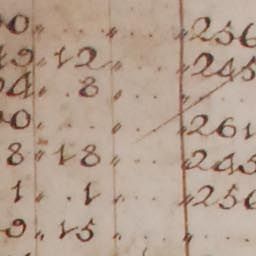 00 „ . . . . „ . . . „ 256
49 „ 12 „ . . . „ 245
94 „ . 8 „ . . . „ . .
00 „ . . . . „ . . . „ 261
8 „ 18 „ . . . „ 245
1 „ . 1 „ . . . „ 256
9 „ 15 „ . . . „ . . .